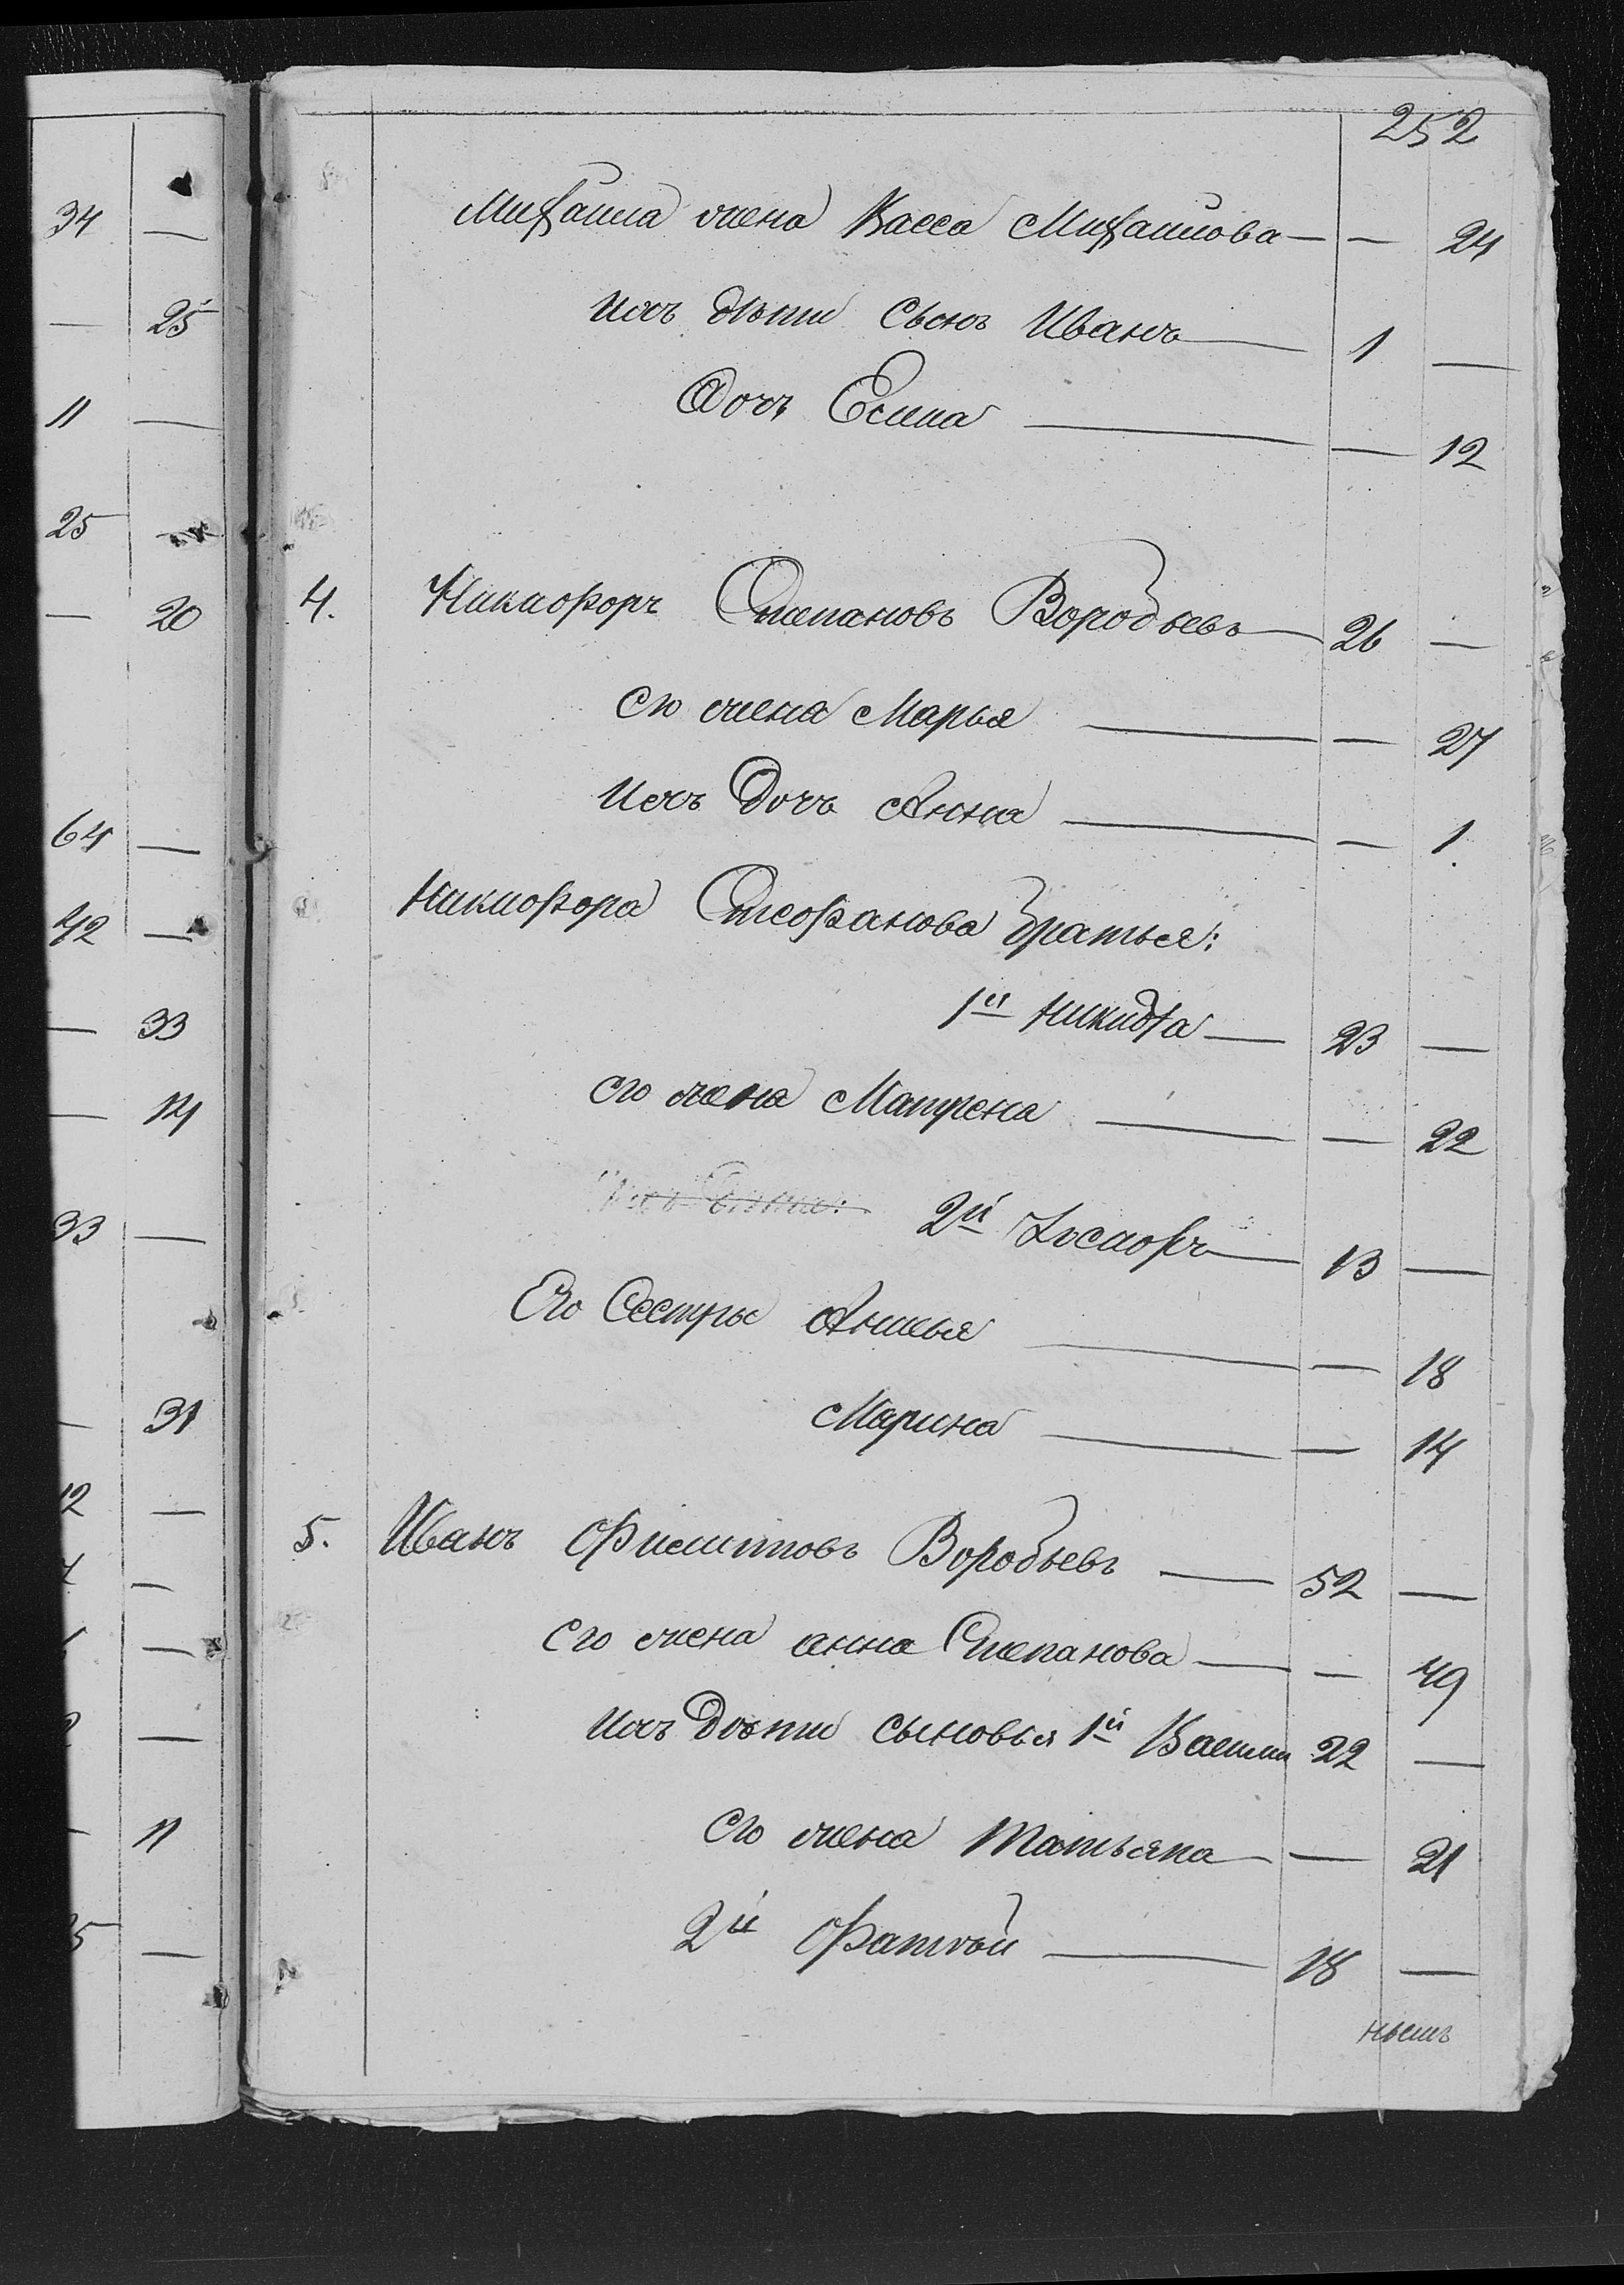 34 —
— 25
11 —
25
— 20
64 —
42 —
— 33
— 14
33 —
— 31
12 —
—
—
—
— 11
5 —
252
Михаила жена Васса Михайлова — — 24
ихъ дѣти сынъ Иванъ — 1 —
дочь Елена — — 12
4. Никифоръ Степановъ Воробьевъ — 26 —
его жена Марья — — 27
ихъ дочь Анна — — 1.
Никифора Стефанова братья:
1й Никита — 23 —
его жена Матрена — — 22
2й Іосифъ — 13 —
Его Сестры — — 18
Марина — — 14
5. Иванъ Филиповъ Воробьевъ — 52 —
его жена анна Степанова — — 49
ихъ дѣти сыновья 1й Васили 22 —
его жена татьяна — — 21
2й Фатѣй — 18 —